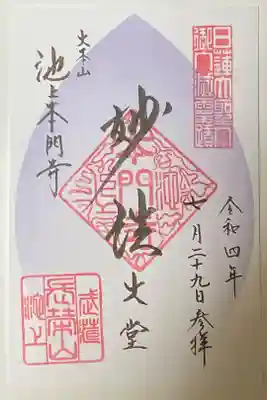 日蓮大聖人
令和四年
七月二十九日参拝
妙法
大堂
大本山
池上本門寺
武蔵
長栄山
池上